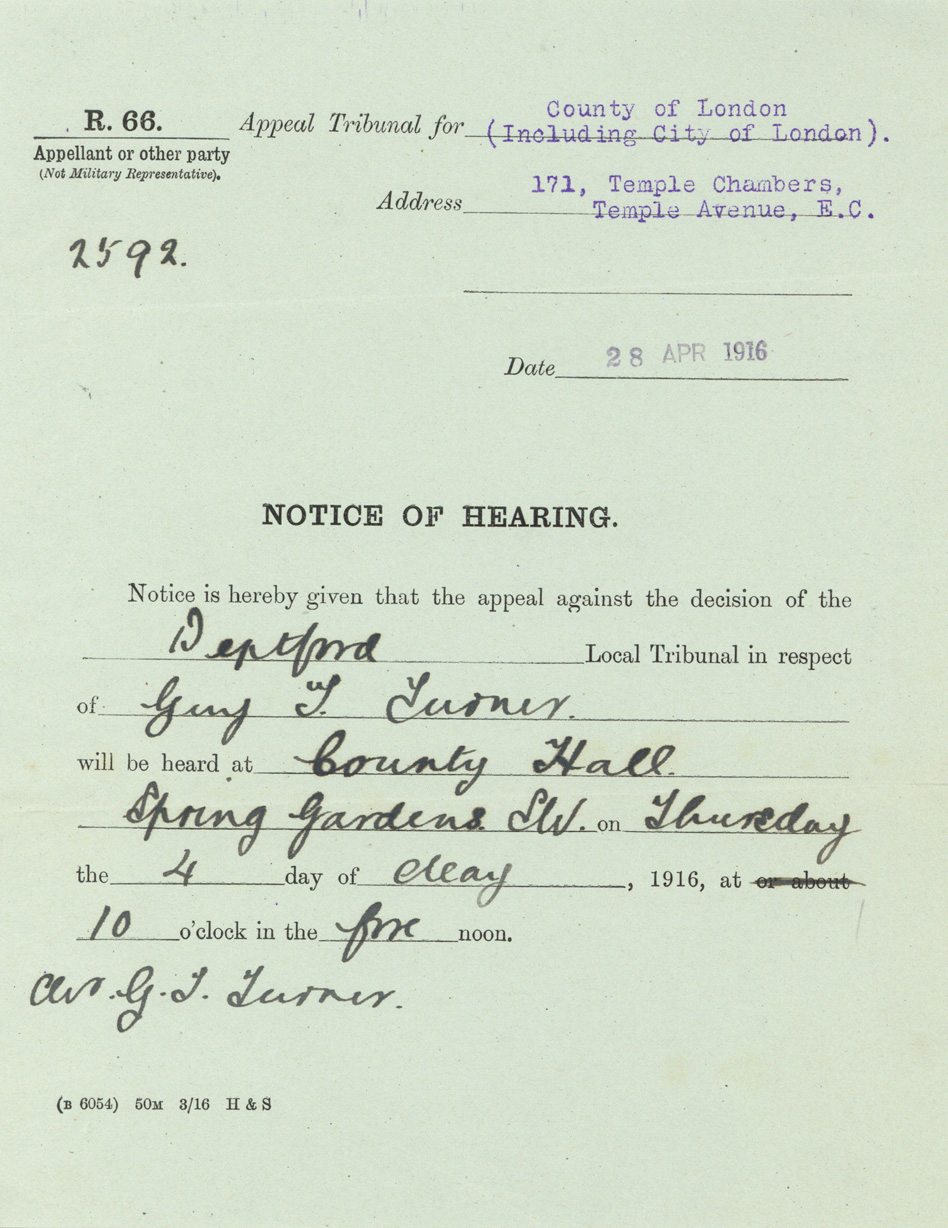 R. 66.
Appellant or other party
(Not Military Representative).
2592.
Appeal Tribunal for County of London
(Including City of London).
Address 171, Temple Chambers,
Temple Avenue, E.C.
Date 28 APR 1916
NOTICE OF HEARING.
Notice is hereby given that the appeal against the decision of the
Deptford Local Tribunal in respect
of Guy T. Turner.
will be heard at County Hall.
Spring Gardens. SW. on Thursday
the 4 day of May, 1916, at or about
10 o'clock in the fore noon.
Mr. G. T. Turner.
(B 6054) 50M 3/16 H & S